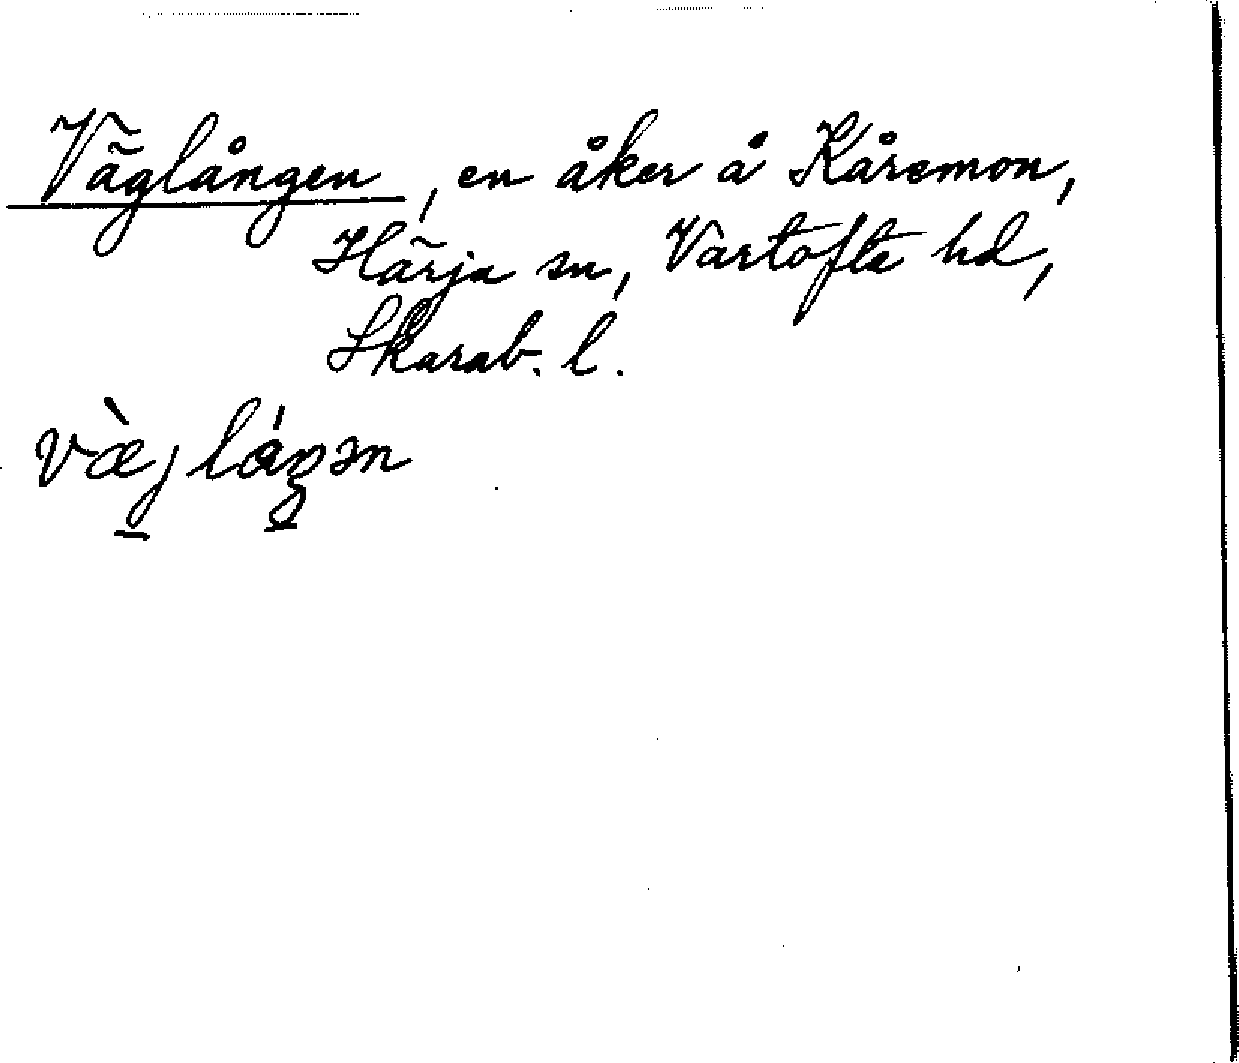 Väglången, en åker å Kåremon,
Härja sn, Vartofta hd,
Skarab. l.
væ̀jláŋən